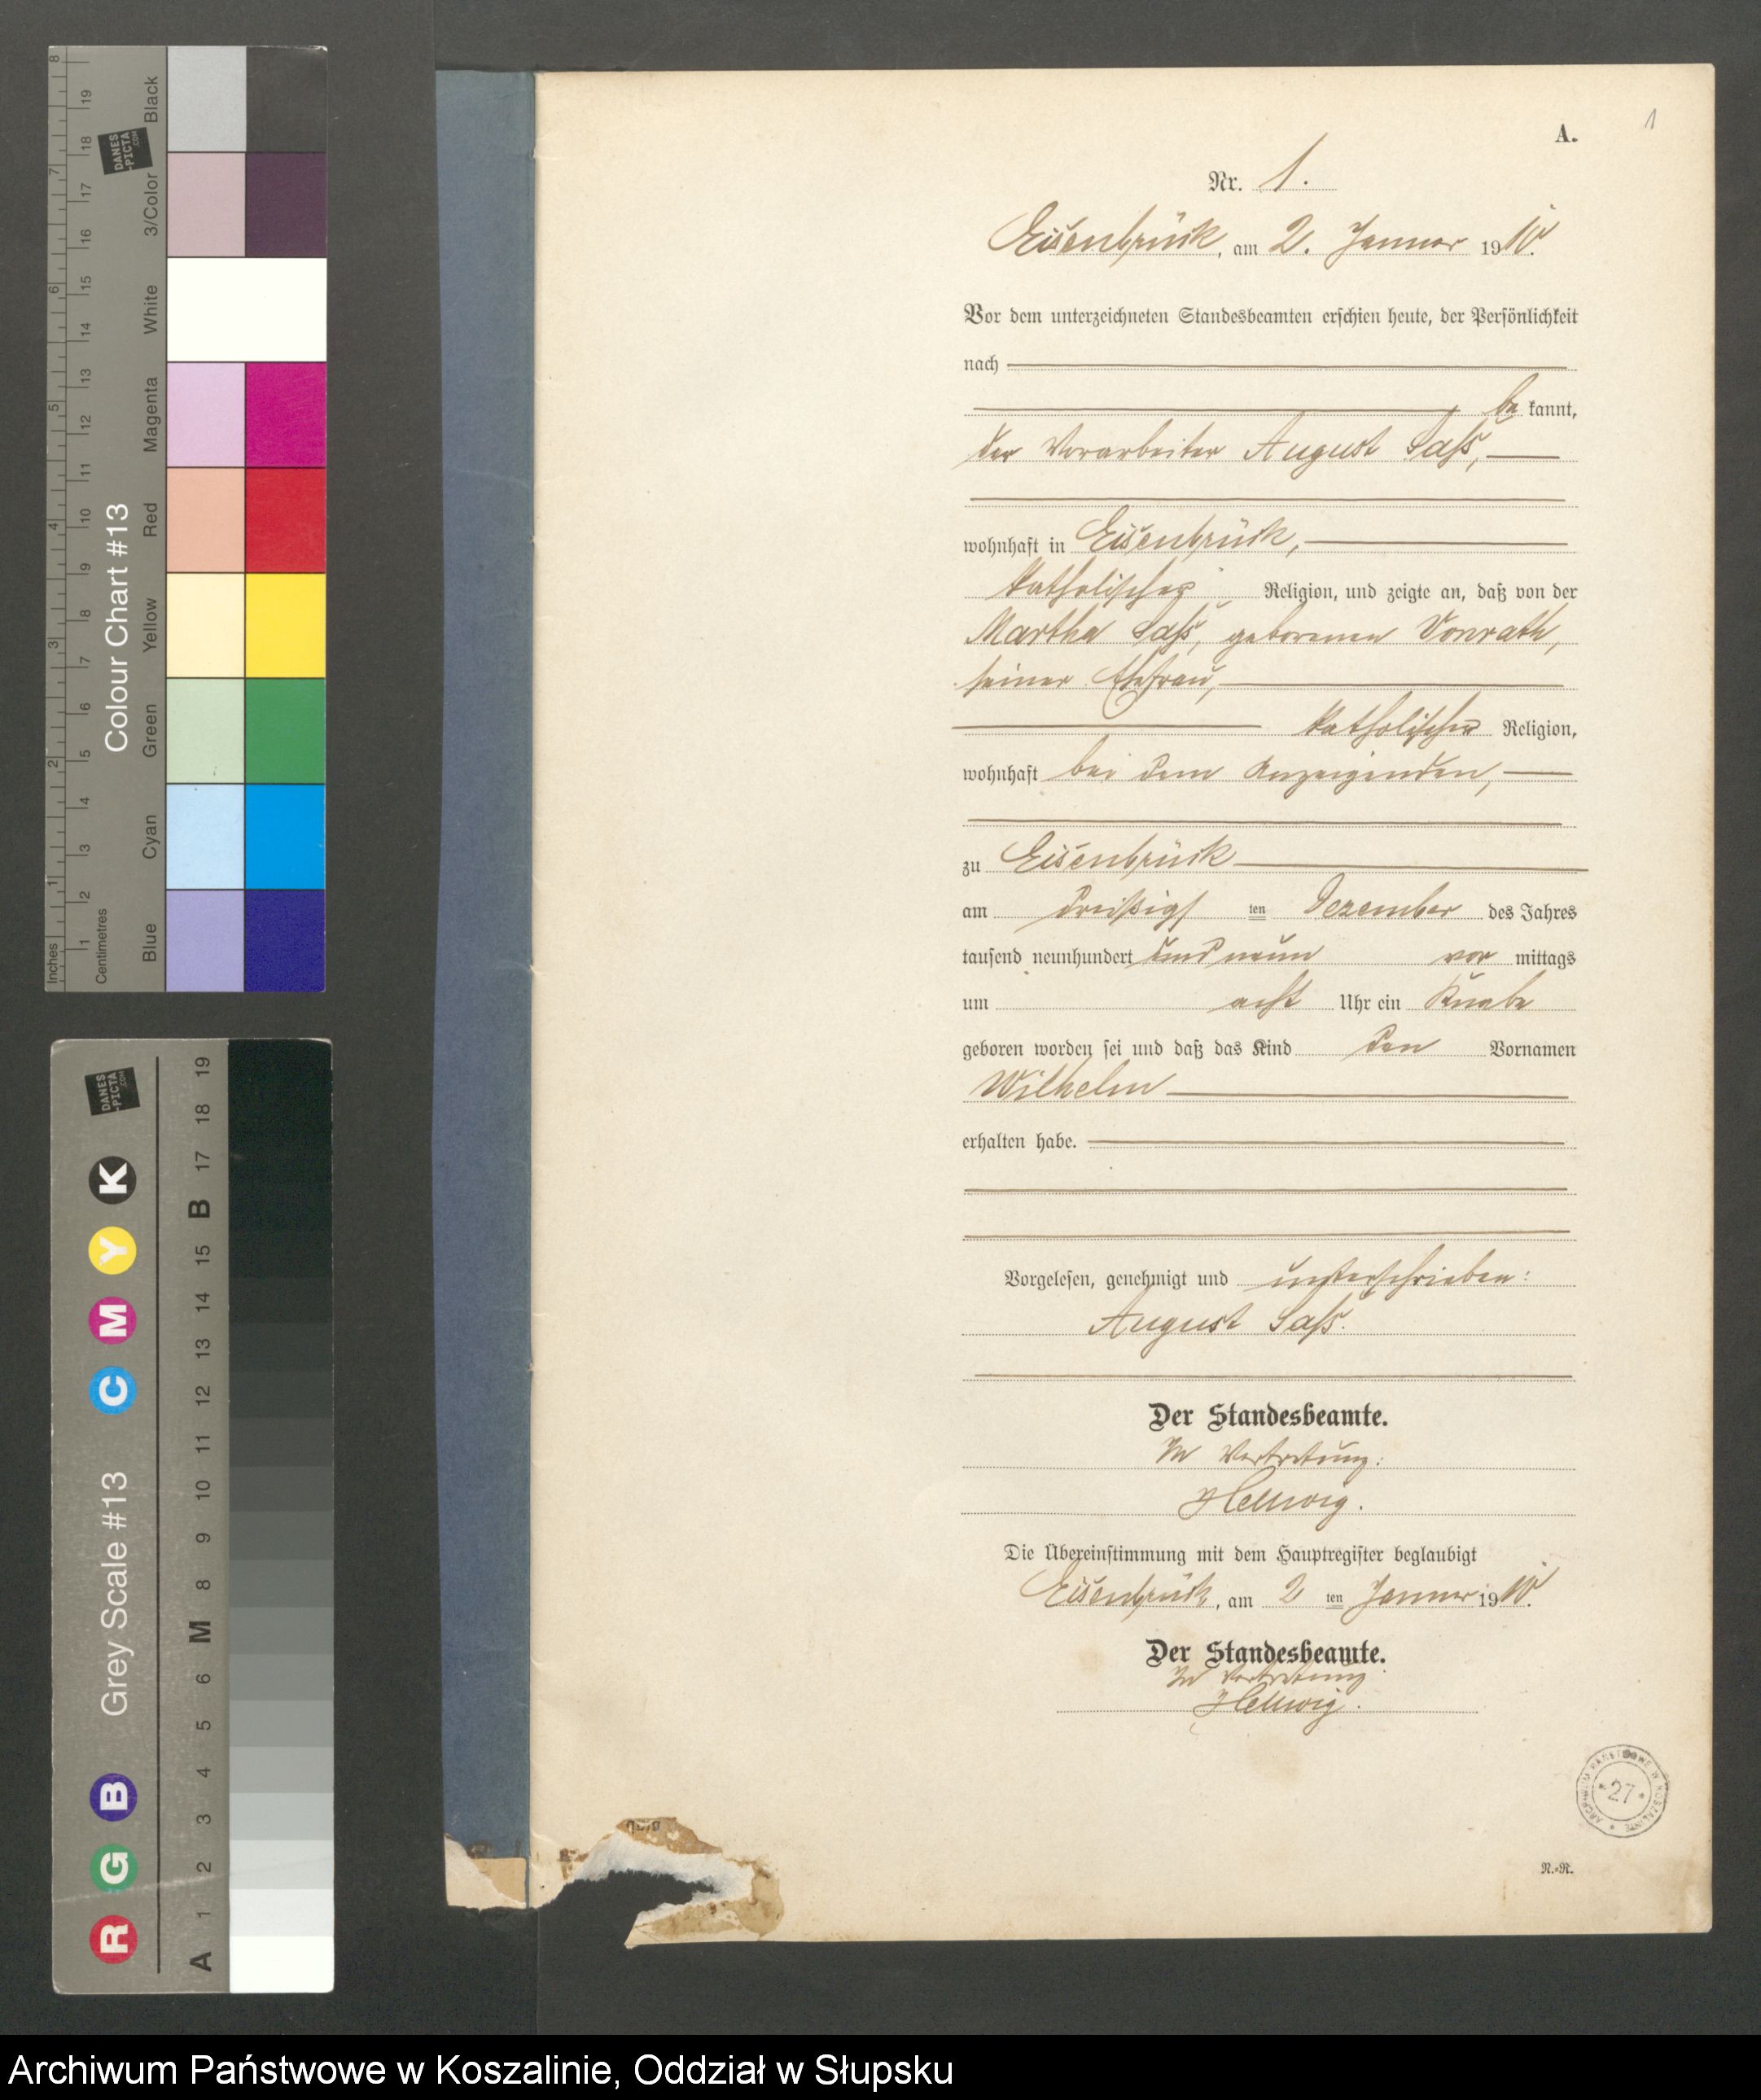 A.
1
Nr. 1.
Eisenbrück, am 2. Januar 1910.
Vor dem unterzeichneten Standesbeamten erschien heute, der Persönlichkeit
nach
be kannt,
der Vorarbeiter August Saß,
wohnhaft in Eisenbrück,
katholischer Religion, und zeigte an, daß von der
Martha Saß, geborenen Vonrath,
seiner Ehefrau,
katholischer Religion,
wohnhaft bei dem Anzeigenden,
zu Eisenbrück
am dreißigs ten Dezember des Jahres
tausend neunhundert und neun vor mittags
um acht Uhr ein Knabe
geboren worden sei und daß das Kind den Vornamen
Wilhelm
erhalten habe.
Vorgelesen, genehmigt und unterschrieben:
August Saß.
Der Standesbeamte.
In Vertretung:
Hellwig.
Die Übereinstimmung mit dem Hauptregister beglaubigt
Eisenbrück, am 2 ten Januar 1910.
Der Standesbeamte.
In Vertretung
Hellwig.
ARCHIWUM PAŃSTWOWE W KOSZALINIE
* 27 *
N.-R.
Colour Chart #13
Blue Cyan Green Yellow Red Magenta White 3/Color Black
Inches 1 2 3 4 5 6 7 8
Centimetres 1 2 3 4 5 6 7 8 9 10 11 12 13 14 15 16 17 18 19
DANES
-PICTA
.COM
Grey Scale #13
R G B C M Y K
A 1 2 3 4 5 6 M 8 9 10 11 12 13 14 15 B 17 18 19
DANES
-PICTA
.COM
Archiwum Państwowe w Koszalinie, Oddział w Słupsku